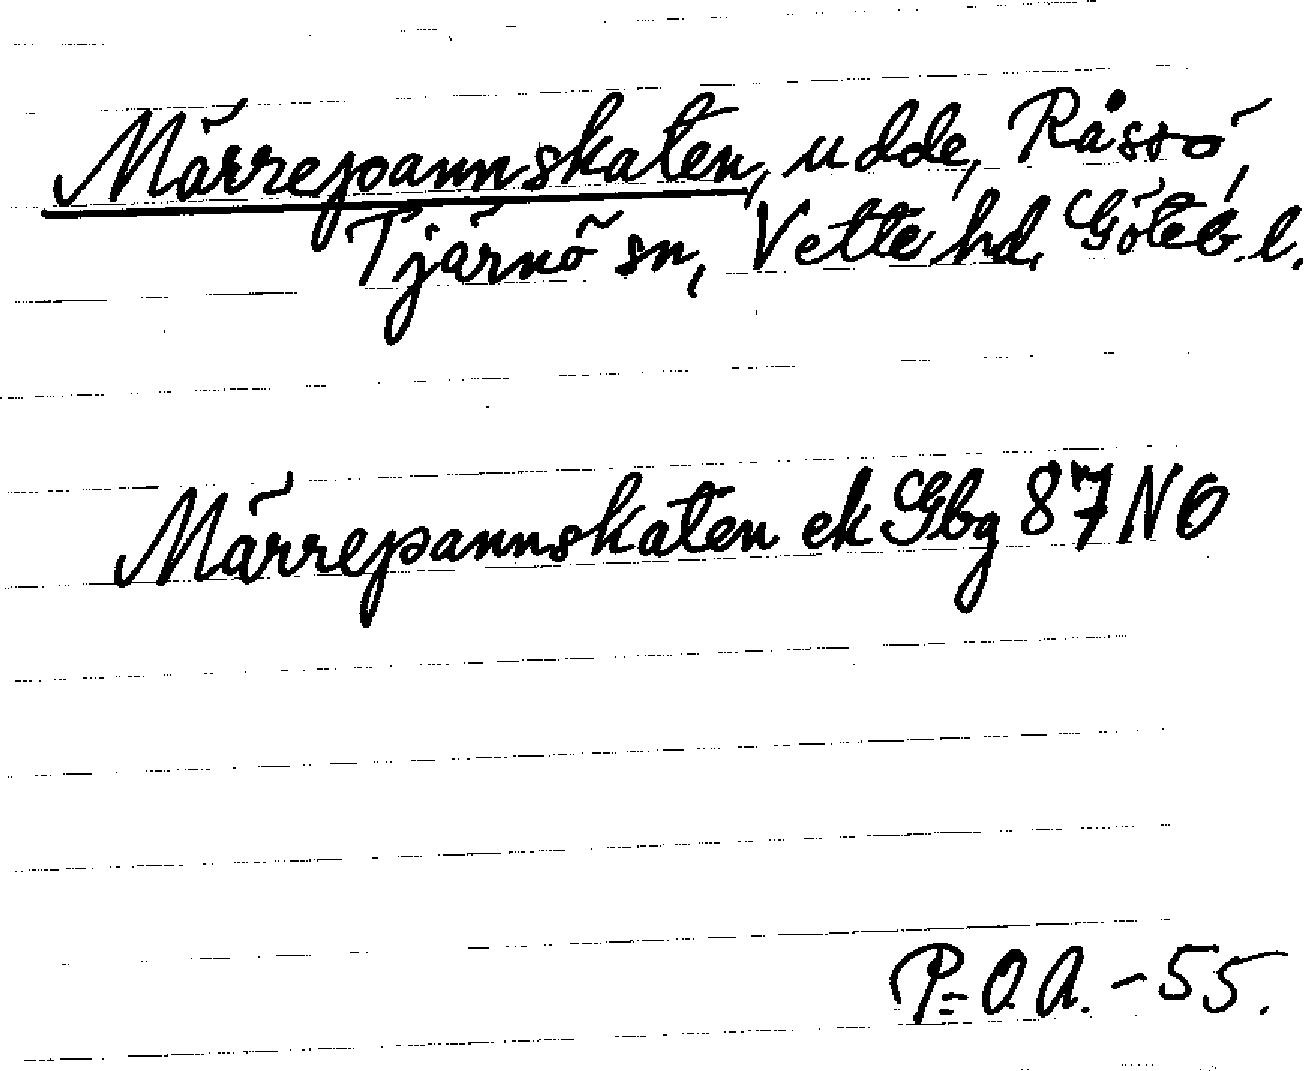 Märrepannskaten, udde, Råssö,
Tjärnö sn, Vette hd, Göteb. l.
Märrepannskaten ek Gbg 87 NO
P=O.A. -55.